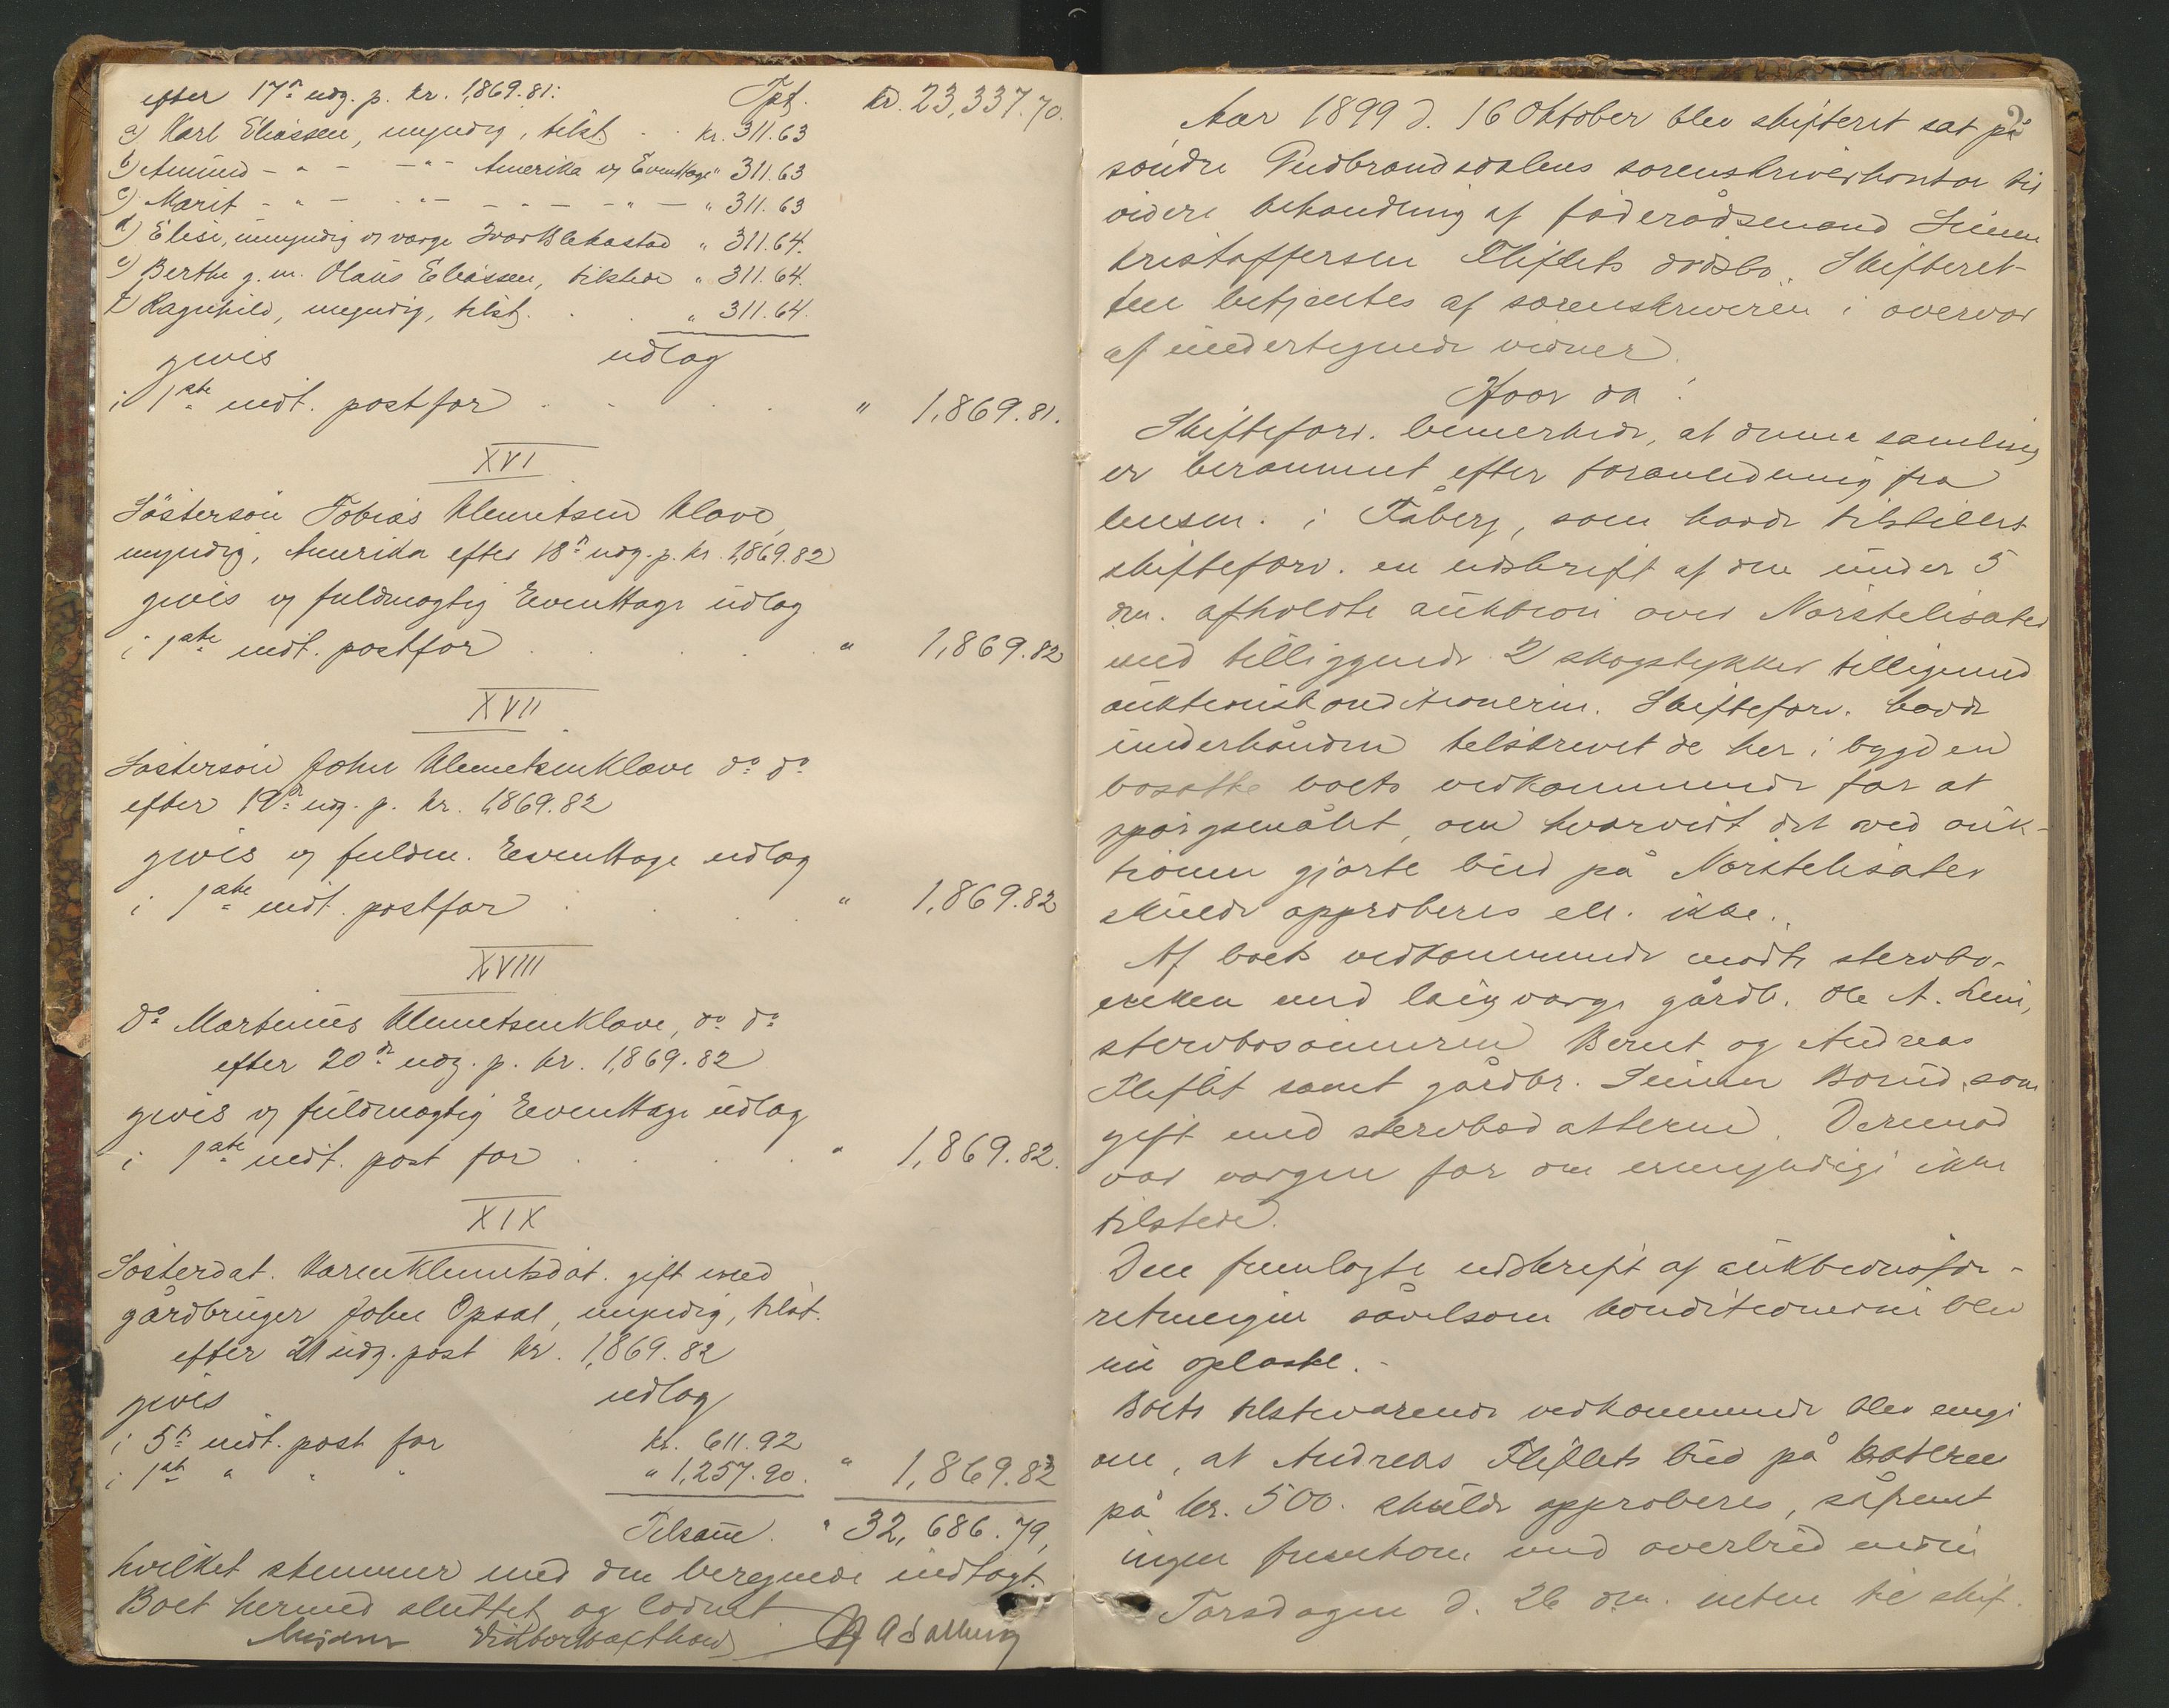 efter 17de udg. p. kr. 1,869.81: Tpt. kr. 23,337.70.
a) Karl Eliassen, myndig, tilst. . . kr. 311.63
b) Amund - " - - " - Amerika v/ Evenhage " 311.63
c) Marit - " - - " - - " - - " - " 311.63
d) Elise, umyndig v/ værge Ivar Slekastad " 311.64.
e) Berthe g. m. Olaus Eliassen, tilstede " 311.64.
f) Ragnhild, myndig, tilst. . . " 311.64.
gives udlæg
i 1ste indt. post for . . . . " 1,869.81.
XVI
Søstersøn Tobias Klemetsen Klove,
myndig, Amerika efter 18de udg. p. kr. 1,869.82
gives v/ fuldmægtig Evenhage udlæg
i 1ste indt. post for . . . . " 1,869.82
XVII
Søstersøn John Klemetsen Klove do do
efter 19de udg. p. kr. 1,869.82
gives v/ fuldm. Evenhage udlæg
i 1ste indt. post for . . . . " 1,869.82
XVIII
do Martinus Klemetsen Klove, do do
efter 20de udg. p. kr. 1,869.82
gives v/ fuldmægtig Evenhage udlæg
i 1ste indt. post for . . . . " 1,869.82.
XIX
Søsterdat. Karen Klemetsdat. gift med
gårdbruger John Opsal, myndig, tilst.
efter 21 udg. post kr. 1,869.82
gives udlæg
i 5te indt. post for kr. 611.92
i 1ste " " " " 1,257.90. " 1,869.82
Tilsam̄. " 32,686.79,
hvilket stemmer med den beregnede indtægt.
Boet hermed sluttet og loddet
2
Aar 1899 d. 16 Oktober blev skifteret sat på
søndre Gudbrandsdalens sorenskriverkontor til
videre behandling af føderådsmand Simen
Kristoffersen Fliflets dødsbo. Skifteret-
ten betjentes af sorenskriveren i overvær
af undertegnede vidner.
Hvor da:
Skifteforv. bemerkede, at denne samling
er berammet efter foranledning fra
lensm. i Fåberg, som havde tilstillet
skifteforv. en udskrift af den under 5
dm. afholdte auktion over Nørstelisæter
med tilliggende 2 skogstykker tilligemed
auktionskonditionerne. Skifteforv. havde
underhånden tilskrevet de her i bygden
bosatte boets vedkommende for at
spørgsmålet, om hvorvidt det ved auk-
tionen gjorte bud på Nørstelisæter
skulde approberes ell. ikke.
Af boets vedkommende mødte stervbo-
enken med laugværge gårdb. Ole A. Lien,
stervbosønnerne Bernt og Andreas
Fliflet samt gårdbr. Simen Borud, som
gift med stervbodatteren. Derimod
var værgen for de umyndige ikke
tilstede.
Den fremlagte udskrift af auktionsfor-
retningen såvelsom konditionerne blev
nu oplæst.-
Boets tilsteværende vedkommende blev enige
om, at Andreas Fliflets bud på sæteren
på kr. 500. skulde approberes, såfremt
ingen fremkom med overbud inden
Torsdagen d. 26 dm. enten til skif.